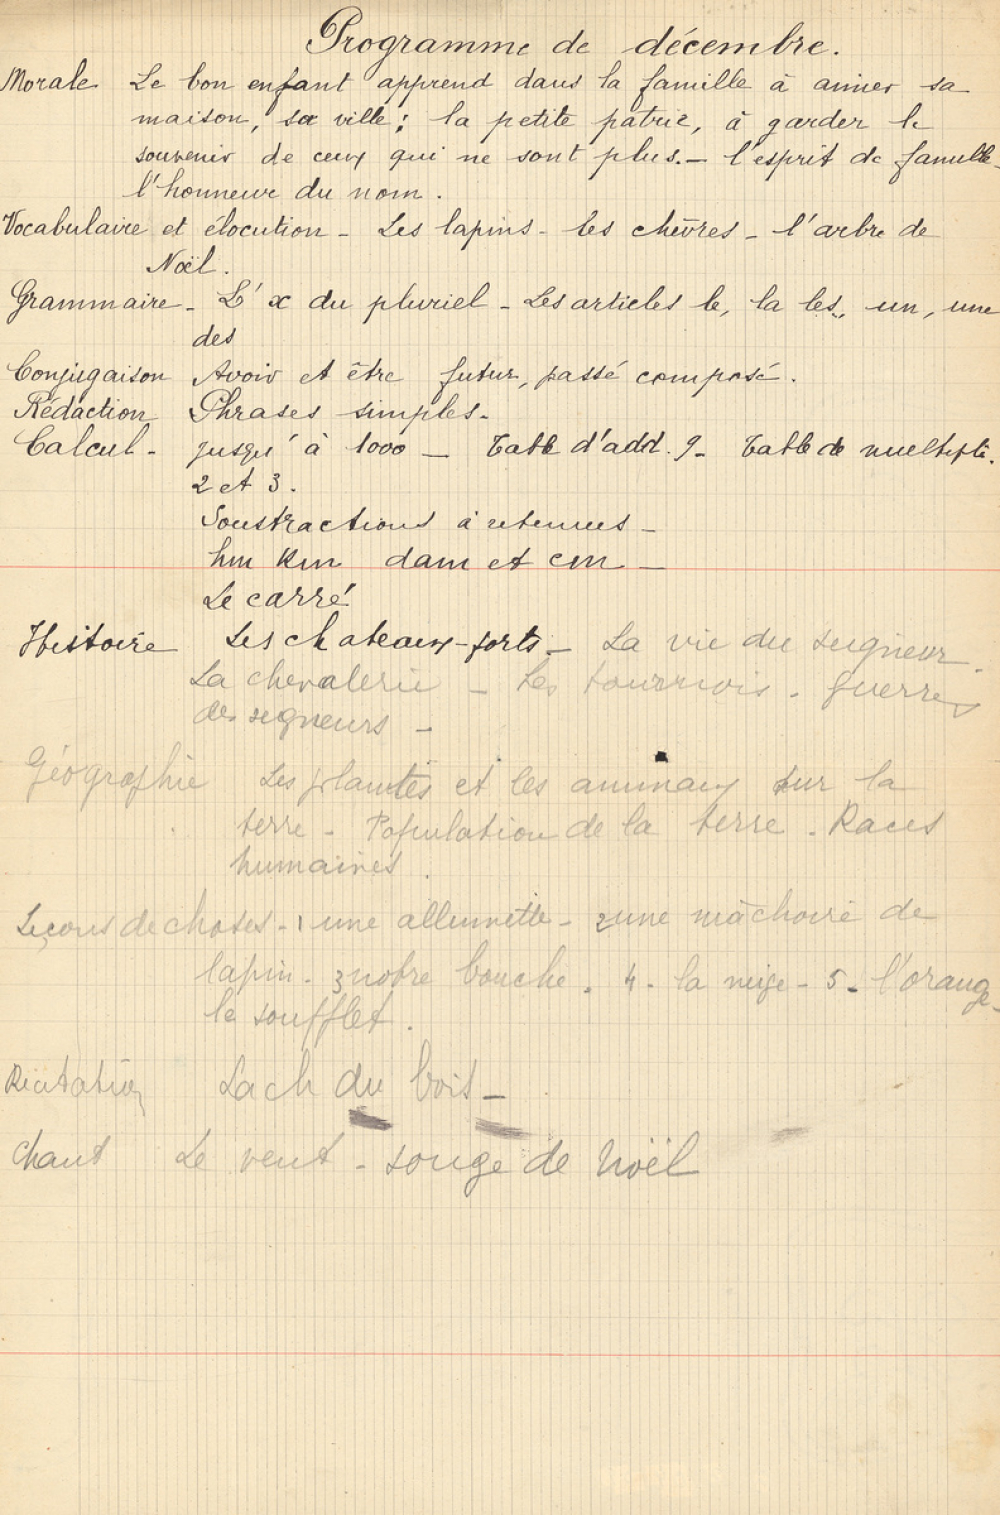 Programme de décembre.
Morale Le bon enfant apprend dans la famille à aimer sa
maison, sa ville ; la petite patrie, à garder le
souvenir de ceux qui ne sont plus. — l'esprit de famille —
l'honneur du nom.
Vocabulaire et élocution — Les lapins — les chèvres — l'arbre de
Noël.
Grammaire — L'x du pluriel — Les articles le, la les, un, une
des
Conjugaison Avoir et être futur, passé composé.
Rédaction Phrases simples.
Calcul — jusqu'à 1000 — Table d'add. 9 — Table de multipli.
2 et 3.
Soustractions à retenues —
hm km dam et cm —
Le carré
Histoire Les chateaux-forts — La vie du seigneur.
La chevalerie — Les tournois. guerres
des seigneurs —
Géographie Les plantes et les animaux sur la
terre — Population de la terre. Races
humaines.
Leçons de choses — 1 une allumette — 2 une mâchoire de
lapin — 3 notre bouche. 4 — la neige — 5 — l'orange —
le soufflet.
Récitation La ch du bois —
Chant Le vent — songe de Noël